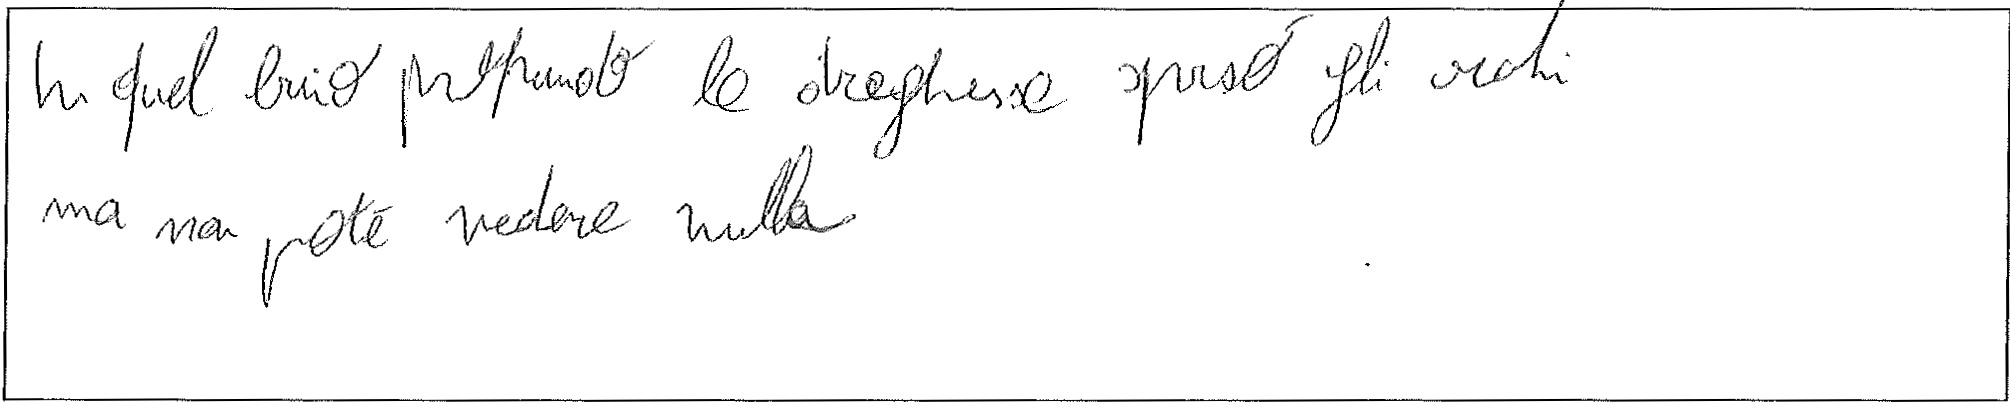 In quel buio profondo la draghessa aprì gli occhi
ma non poté vedere nulla